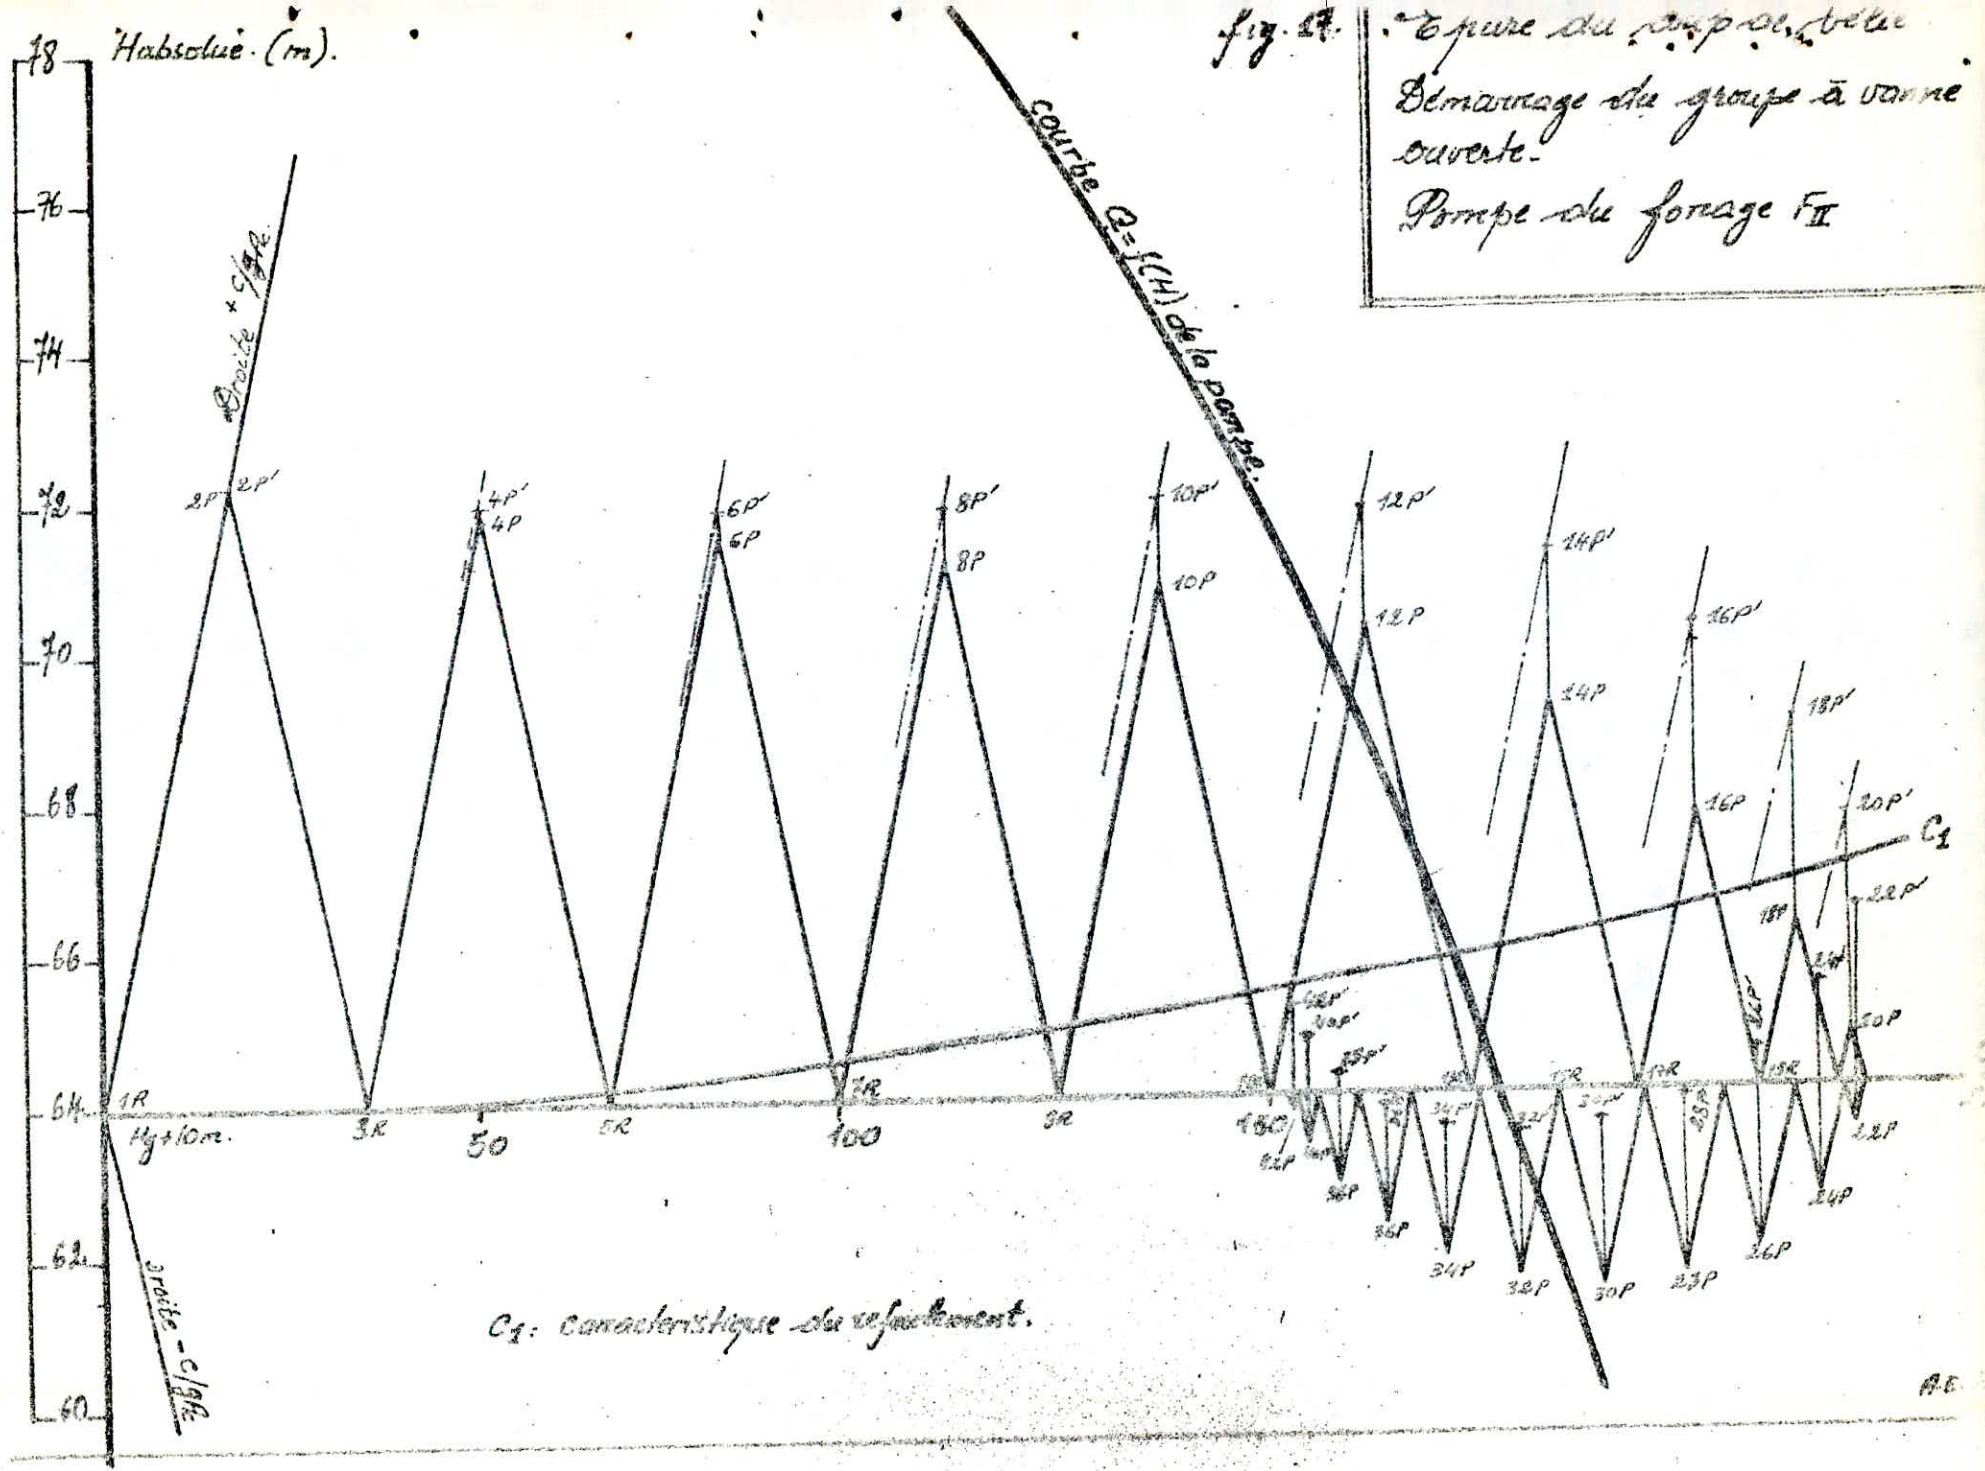 Habsolue. (m).
fig. 17.
Epure du coup de bélier
Démarrage du groupe à vanne
ouverte.
Pompe du forage FII
78
76
74
72
70
68
66
64
62
60
Droite + c/gAc
courbe Q=f(H) de la pompe.
2P 2P'
4P'
4P
6P'
6P
8P'
8P
10P'
10P
12P'
12P
14P'
14P
16P'
16P
18P'
18P
20P'
20P
22P'
22P
C1
1R
Hg+10m.
3R
50
5R
100
7R
9R
150
17R
24P
26P
30P
32P
34P
36P
droite - c/gAc
C1: caracteristique du refoulement.
A.E.